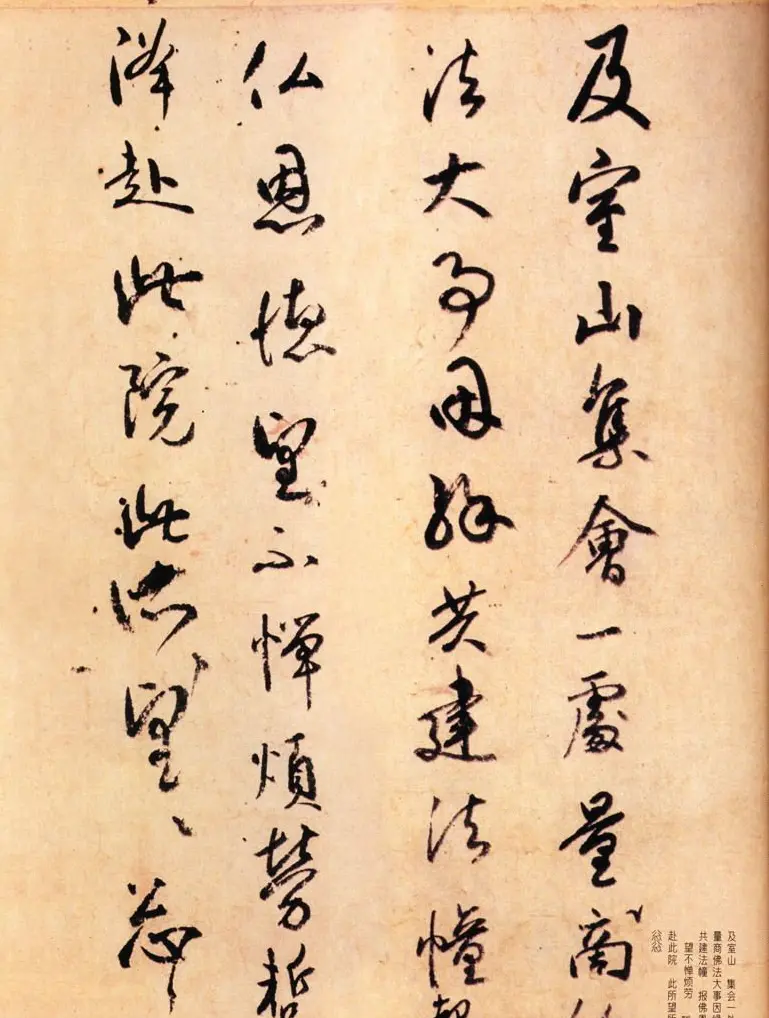 及室山集會一處量商
法大事因縁共建法幢報
仏恩徳望不憚煩勞
降赴此院此所望々忩々
及室山 集会一
量商佛法大事因缘
共建法幢 报佛
望不惮烦劳
赴此院 此所望
忩忩